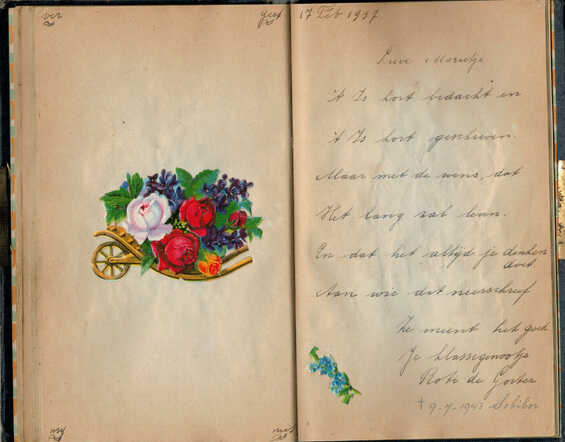 ver geet
mij niet
17 Feb 1937
Lieve Morietje
't Is kort bedacht en
't Is kort geschreven.
Maar met de wens, dat
Het lang zal leven.
En dat het altijd je denken
doet.
Aan wie dit neerschreef
Ze meent het goed
Je klassegenootje
de Gorter
† 9-7-1943 Sobibor